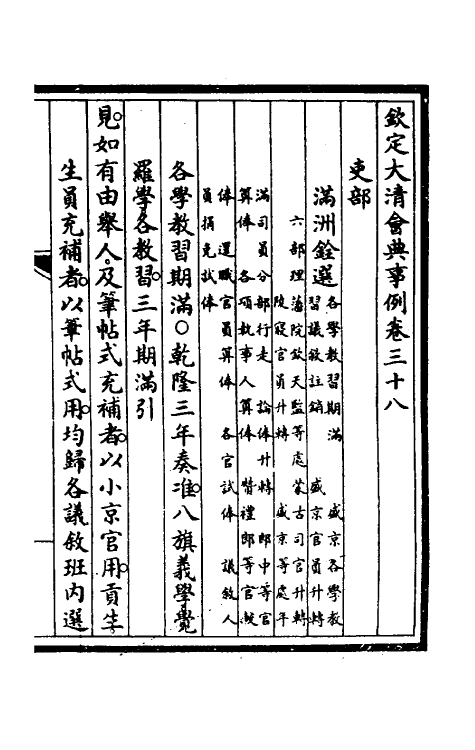 欽定大清會典事例卷三十八
吏部
滿洲銓選 各學教習期滿 盛京各學教
習議敘註銷 盛京官員升轉
六部理藩院欽天監等處蒙古司官升轉
陵寢官員升轉 盛京等處年
滿司員分部行走 論俸升轉 郎中等官
算俸 各項執事人算俸 贊禮郎等官較
俸 還職官員算俸 各官試俸 議敘人
員捐免試俸
各學教習期滿○乾隆三年奏准。八旗義學覺
羅學各教習。三年期滿引
見。如有由舉人。及筆帖式充補者。以小京官用。貢生。
生員充補者。以筆帖式用。均歸各議敘班內選